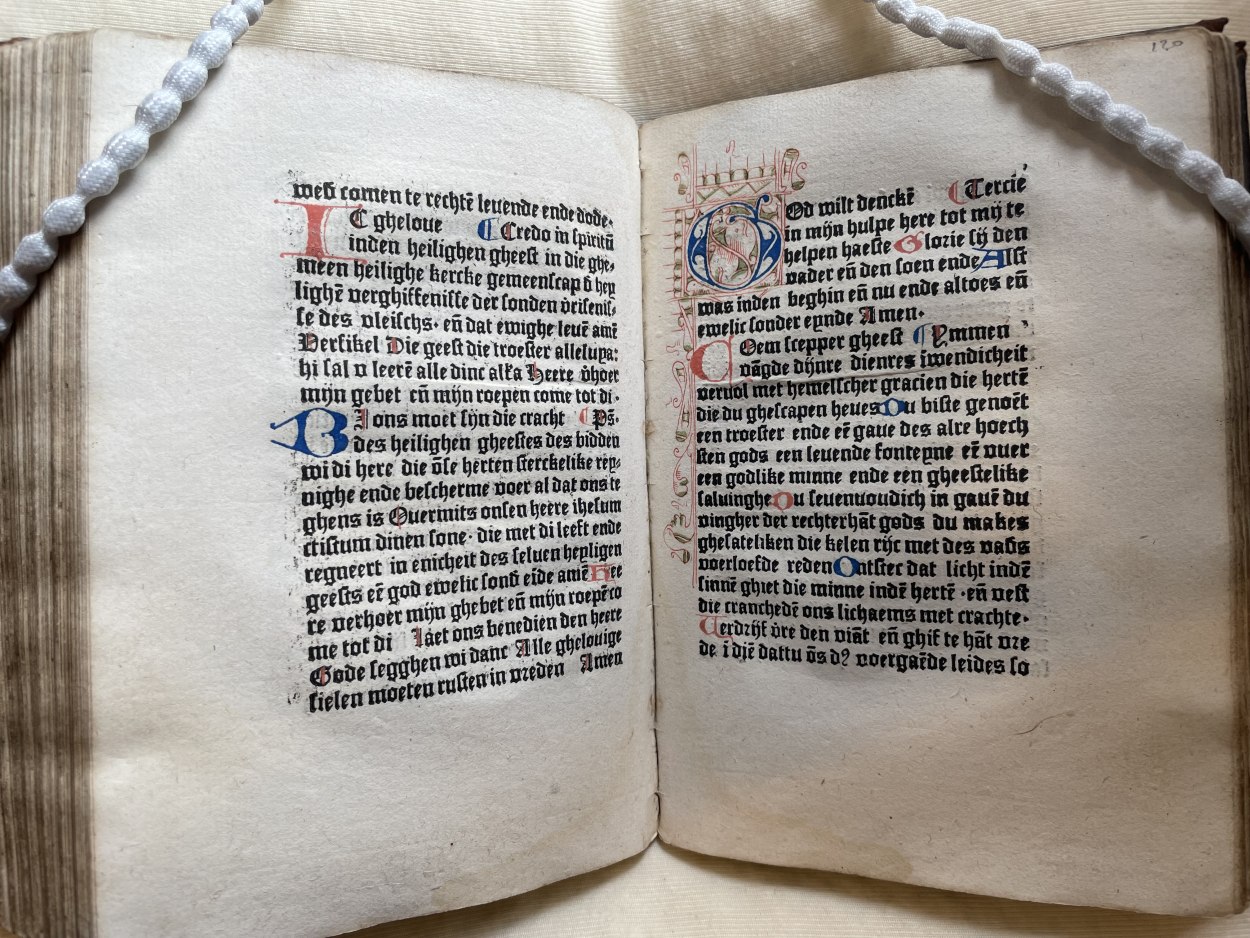 web comen te rechtē leuende ende dode·
IC gheloue Credo in spiritū
inden heilighen gheest in die ghe⸗
meen heilighe kercke gemeenscap d̄ hey
lighē verghiffenisse der sonden v̄risenis⸗
se des vleischs· eñ dat ewighe leuē amē
Versikel Die geest die troester alleluya:
hi sal v leerē alle dinc alsa Heere v̄hoer
mijn gebet eñ mijn roepen come tot di·
BI ons moet sijn die cracht Ps̄.
des heilighen gheestes des bidden
wi di here die ōse herten sterckelike rey⸗
nighe ende bescherme voer al dat ons te
ghens is Ouermits onsen heere ihesum
cristum dinen sone· die met di leeft ende
regneert in enicheit des seluen heyligen
geests eē god ewelic sond̄ eīde amē Hee
re verhoer mijn ghebet eñ mijn roepē co
me tot di laet ons benedien den heere
Gode segghen wi danc Alle ghelouige
sielen moeten rusten in vreden Amen
120
GOd wilt denckē Tercie
in mijn hulpe here tot mij te
helpen haeste Glorie sij den
vader eñ den soen ende Alst
was inden beghin eñ nu ende altoes eñ
ewelic sonder eynde Amen·
COem scepper gheest Ymmen
vāgde dijnre dienres īwendicheit
vervol met hemelscher gracien die hertē
die du ghescapen heues Du biste genoēt
een troester ende eē gaue des alre hoech
sten gods een leuende fonteyne eē vuer
een godlike minne ende een gheestelike
saluinghe Du seuenvoudich in gauē du
vingher der rechterhāt gods du makes
ghesateliken die kelen rijc met des vads
voerloefde reden Ontstec dat licht indē
sinnē ghiet die minne indē hertē ·eñ vest
die cranchedē ons lichaems met crachte·
Verdrijf v̄re den viāt eñ ghif te hāt vre
de ī djē dattu ōs d? voergaēde leides so